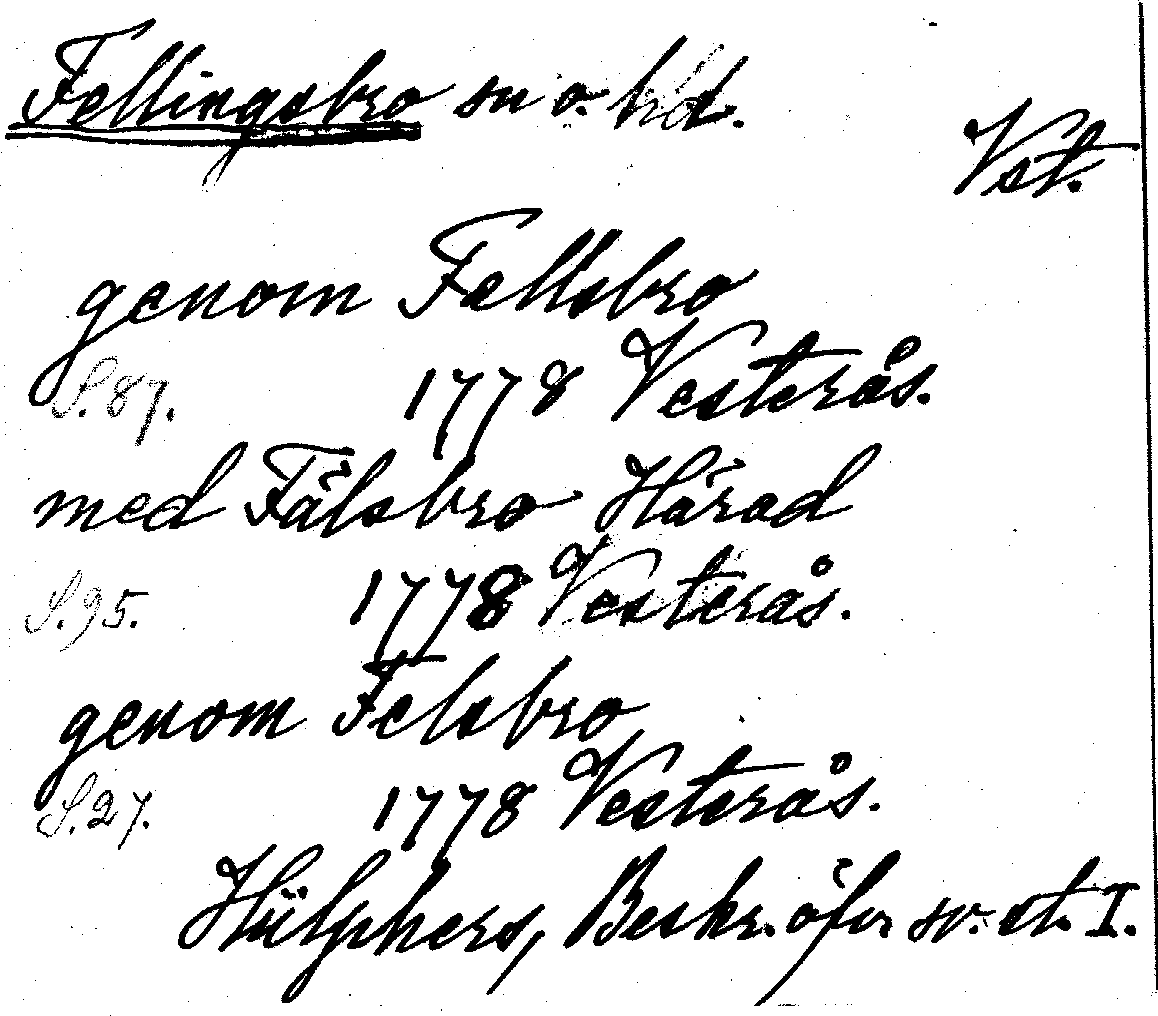 Fellingsbro sn o. hd.
Vst.
genom Fellsbro
S. 87. 1778 Vesterås.
med Fälsbro Härad
S. 95. 1778 Vesterås.
genom Felsbro
S. 27. 1778 Vesterås.
Hülphers, Beskr. öfver sv. st. I.